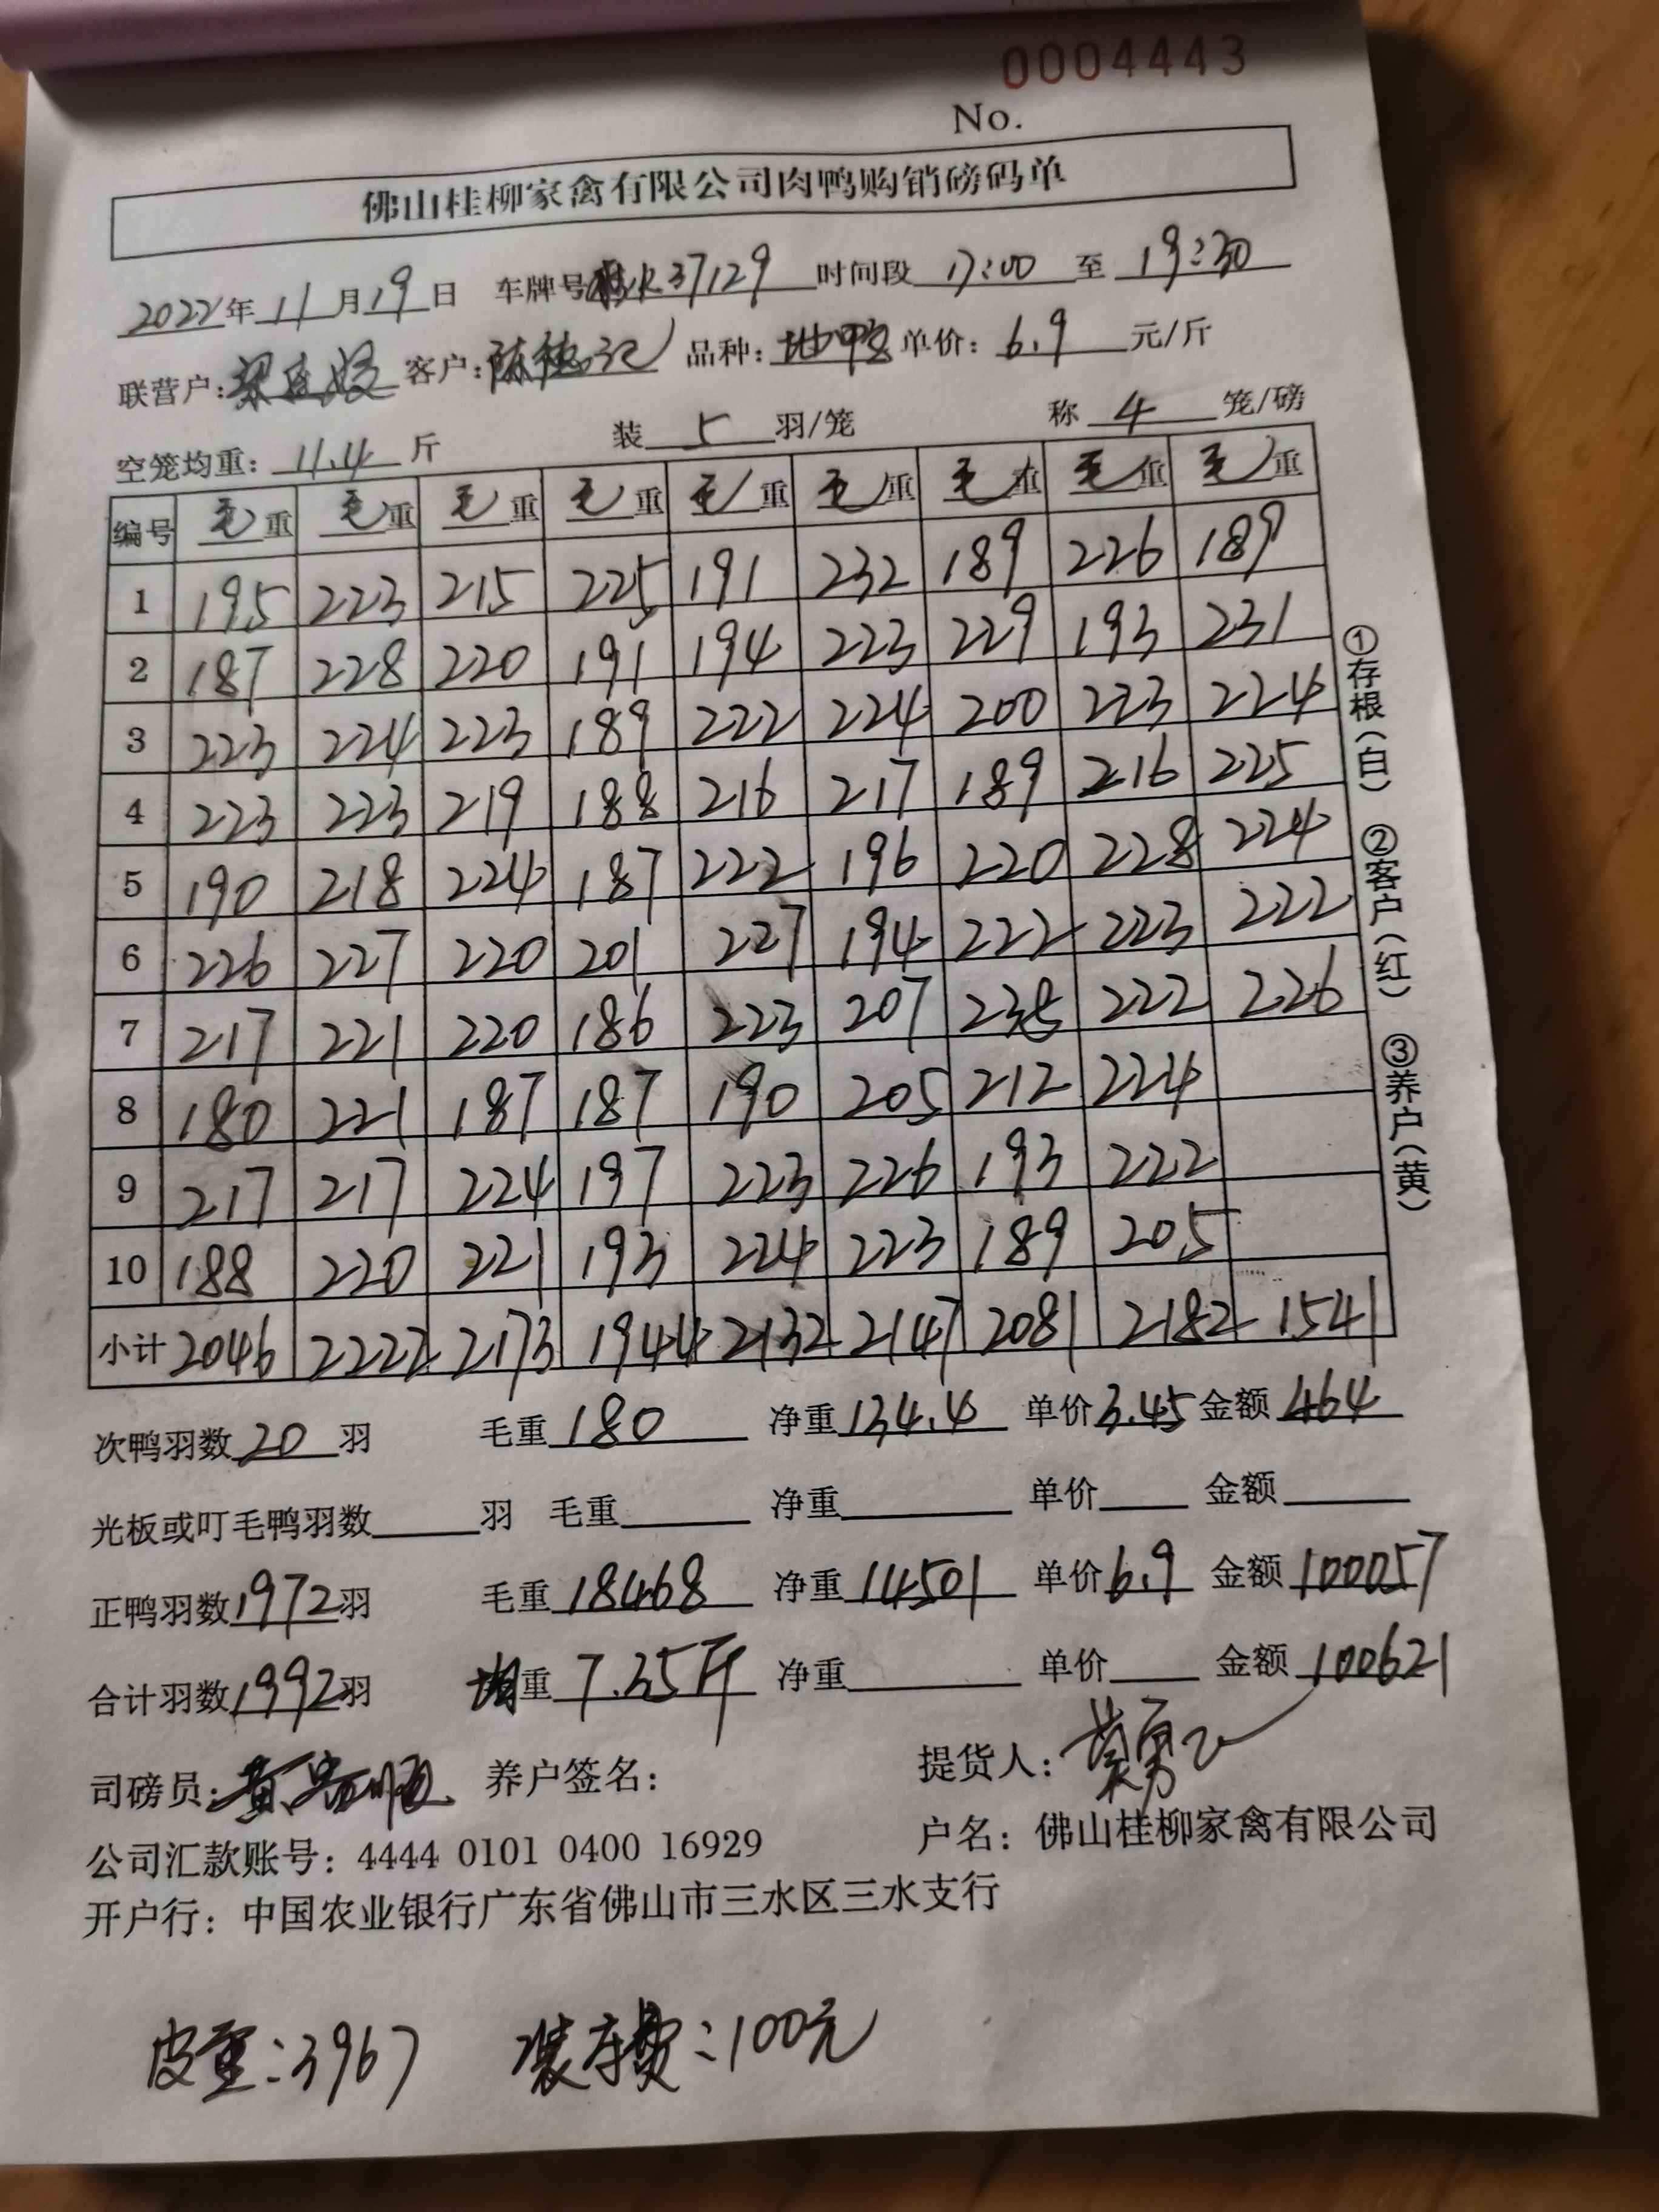 0004443
No.
佛山桂柳家禽有限公司肉鸭购销磅码单
2022年 11 月 19 日 车牌号 37129 时间段 17:00 至 19:30
联营户: 客户:陈德记 品种: 单价: 6.9 元/斤
空笼均重: 11.4 斤 装 5 羽/笼 称 4 笼/磅
编号 毛重 毛重 毛重 毛重 毛重 毛重 毛重 毛重 毛重
1 195 223 215 225 191 232 189 226 189
2 187 228 220 191 194 223 229 193 231
3 223 224 223 189 222 224 200 223 224
4 223 223 219 188 216 217 189 216 225
5 190 218 224 187 222 196 220 228 224
6 226 227 220 201 227 194 222 223 222
7 217 221 220 186 223 207 238 222 226
8 180 221 187 187 190 205 212 224
9 217 217 224 197 223 226 193 222
10 188 220 221 193 224 223 189 205
小计 2046 2222 2173 1944 2132 2147 2081 2182 1541
①存根(白) ②客户(红) ③养户(黄)
次鸭羽数 20 羽 毛重 180 净重 134.4 单价 3.45 金额 464
光板或叮毛鸭羽数 羽 毛重 净重 单价 金额
正鸭羽数 1972 羽 毛重 18468 净重 14501 单价 6.9 金额 100057
合计羽数 1992 羽 均重 7.35斤 净重 单价 金额 100621
司磅员: 养户签名: 提货人:
公司汇款账号: 4444 0101 0400 16929 户名: 佛山桂柳家禽有限公司
开户行: 中国农业银行广东省佛山市三水区三水支行
皮重:3967 装车费:100元